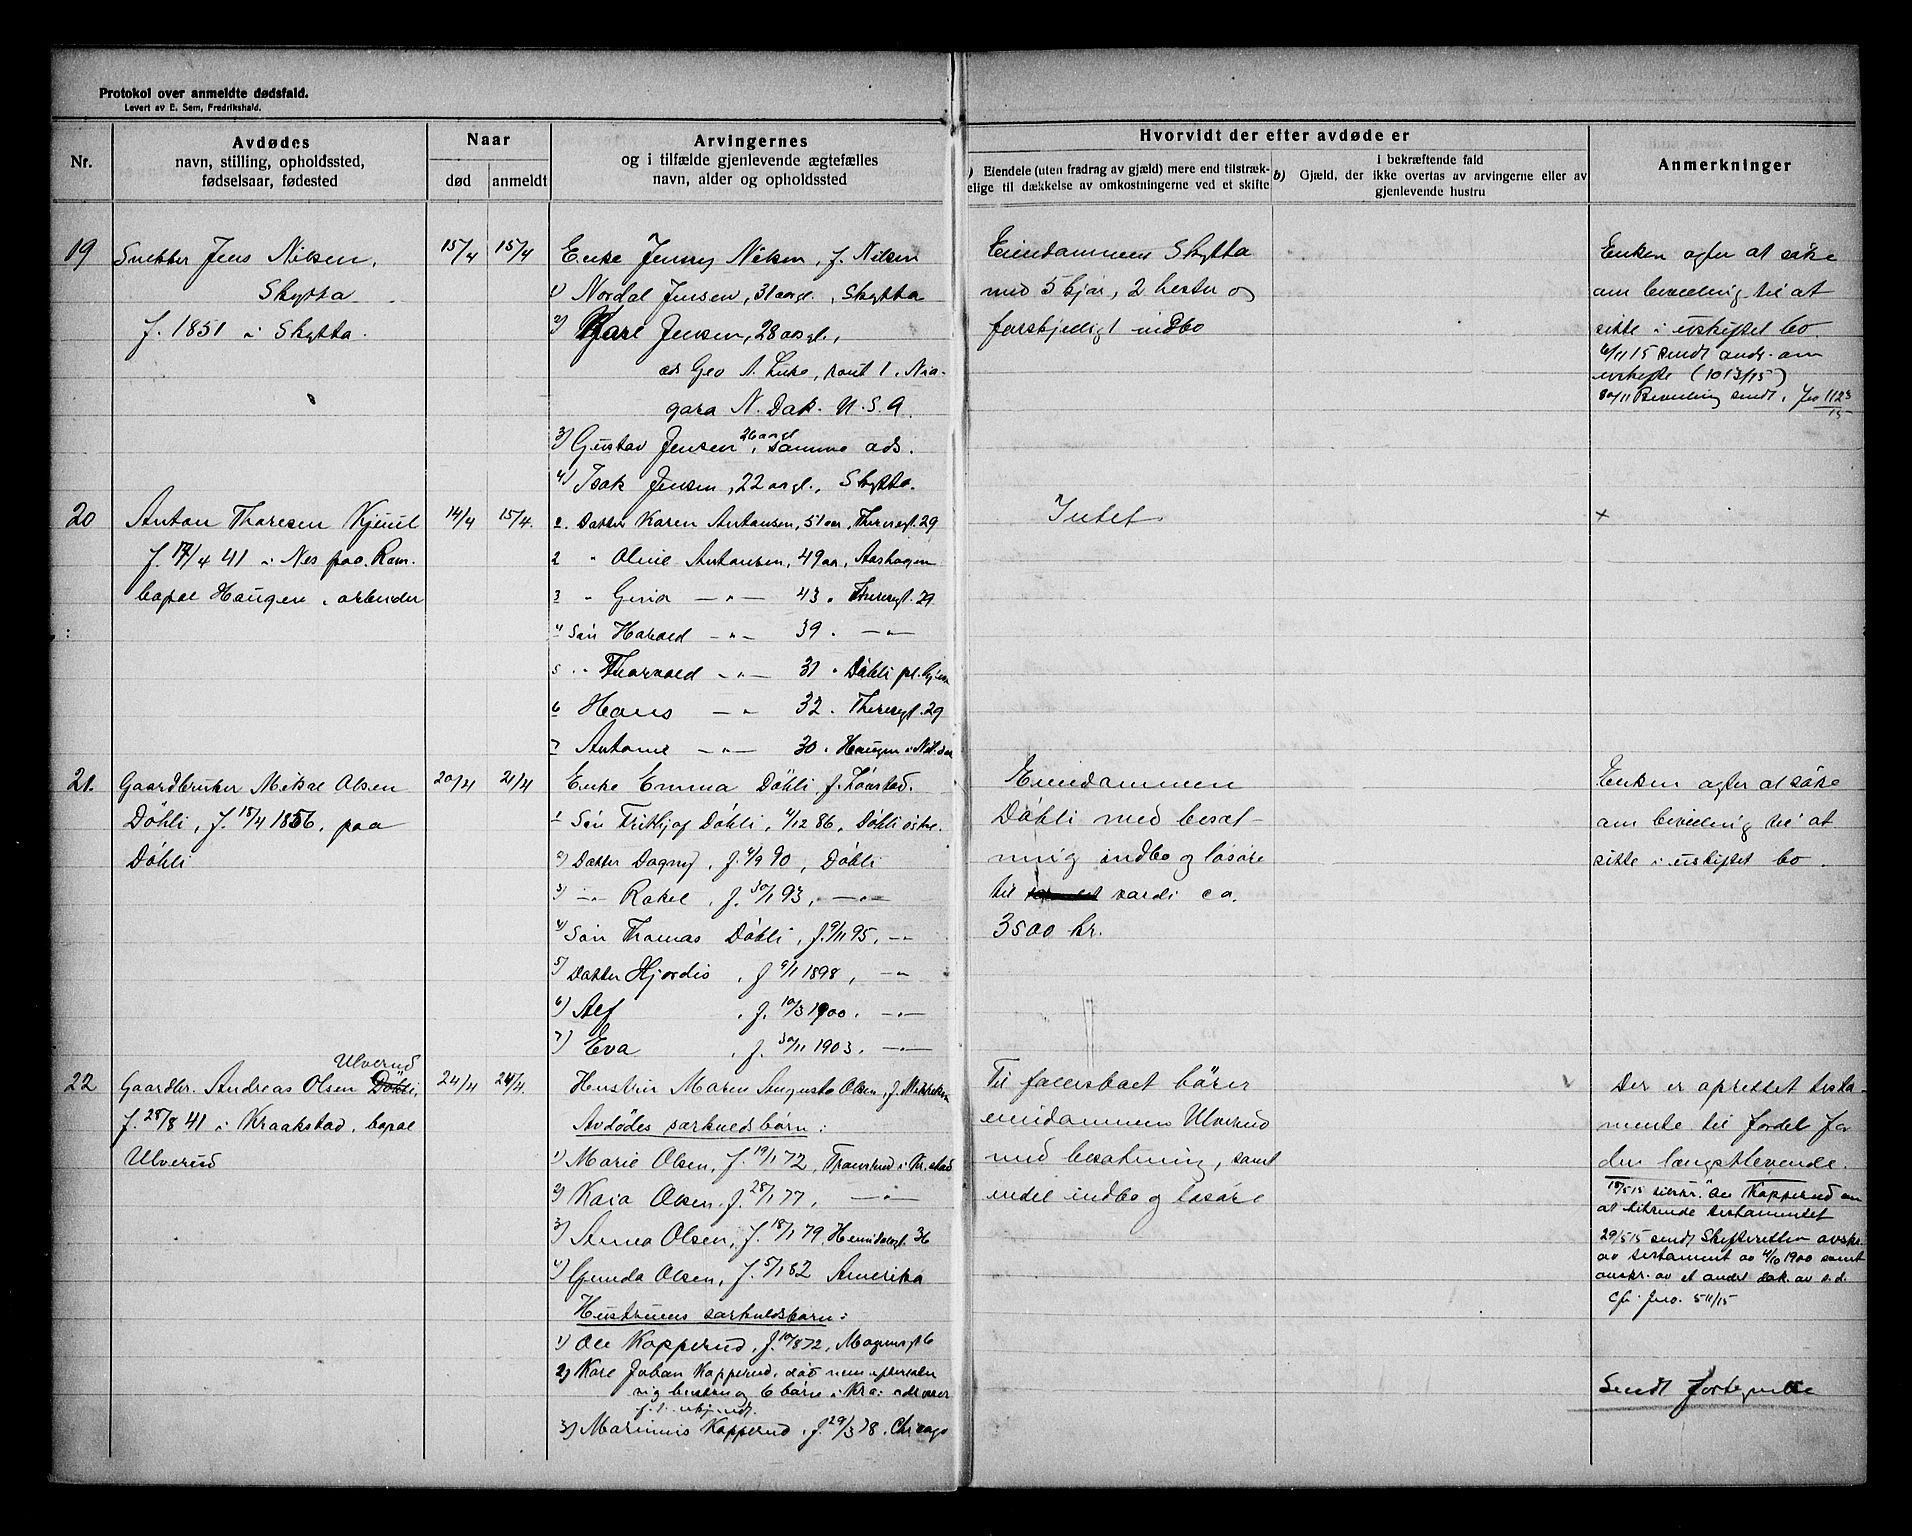 Protokol over anmeldte dødsfald.
Levert av E. Sem, Fredrikshald.
Nr.
Avdødes
navn, stilling, opholdssted,
fødselsaar, fødested
Naar
død anmeldt
Arvingernes
og i tilfælde gjenlevende ægtefælles
navn, alder og opholdssted
Hvorvidt der efter avdøde er
Eiendele (uten fradrag av gjæld) mere end tilstræk-
kelige til dækkelse av omkostningerne ved et skifte
b) I bekræftende fald
Gjæld, der ikke overtas av arvingerne eller av
gjenlevende hustru
Anmerkninger
19
Snekker Jens Nilsen,
Skytta
f. 1851 i Skytta.
15/4 15/4
Enke Jenny Nilsen, f. Nilsen
1) Nordal Jensen, 31 aargl., Skytta
2) Karl Jensen, 28 aargl.,
ads Geo A. Luke, rout 1. Nia-
gara N. Dak. U.S.A.
3) Gustav Jensen, 26 aargl samme ads.
4) Isak Jensen, 22 aargl., Skytta.
Eiendommen Skytta
med 5 kjør, 2 hester og
forskjelligt indbo
Enken agter at søke
om bevilling til at
sitte i uskiftet bo.
6/11 15 sendt andr. om
uskifte (1013/15)
30/11 Bevilling sendt. Jno 1123/15
20
Anton Thoresen Kjuul
f. 17/4 41 i Nes paa Rom.
bopæl Haugen, arbeider
14/4 15/4.
1. Datter Karen Antonsen, 51 aar, Theresgt. 29
2 " Oline Antonsen, 49 aar, Aashagen
3 " Gina — " — 43 " Theresgt. 29
4 Søn Harald — " — 39 " — " —
5 " Thorvald — " — 31 " Døhli pl.
6 Hans — " — 32 " Theresgt. 29
7 Antone — " — 30 " Haugen i
Intet
x
21.
Gaardbruker Mikal Olsen
Døhli, f. 18/4 1856, paa
Døhli
20/4 21/4
Enke Emma Døhli f.
1 Søn Frithjof Døhli, 4/12 86, Døhli
2) Datter Dagny, f. 4/9 90, Døhli
3) — " — Rakel, f. 30/1 93, — " —
4) Søn Thomas Døhli, f. 9/11 95, — " —
5) Datter Hjordis, f 9/1 1898, — " —
6) Alf, f. 10/3 1900. — " —
7) Eva, f. 30/11 1903. — " —
Eiendommen
Døhli med besæt-
ning indbo og løsøre
til værdi ca.
3500 kr.
Enken agter at søke
om bevilling til at
sitte i uskiftet bo.
22
Ulverud
Gaardbr. Andreas Olsen Døhli,
f. 28/8 41 i Kraakstad, bopæl
Ulverud
24/4 24/4.
Hustrun Maren Augusta Olsen, f.
Avdødes særkuldsbørn:
1) Marie Olsen, f. 19/1 72, i Kr.stad
2) Kaia Olsen, f. 28/1 77, — " —
3) Anna Olsen, f. 18/1 79, 36
4) Gunda Olsen, f. 5/1 82 Amerika
Hustruens særkuldsbørn:
1) Ole Kopperud, f. 10/8 72, Magnusgt 6
2) Karl Johan Kopperud, død men efterlater
sig hustru og 6 børn i Kra: adresser
f. t. ukjendt.
3) Marinius Kopperud, f. 29/3 78, Chicago
Til fællesboet hører
eiendommen Ulverud
med besætning, samt
endel indbo og løsøre
Der er oprettet testa-
mente til fordel for
den længstlevende.
18/5 15 tilskr. Ole Kopperud om
at tilsende testamentet
29/5 15 sendt Skifteretten avskr.
av testament av 4/10 1900 samt
avskr. av et andet dok. av s.d.
Cfr. Jno. 511/15
Sendt fortegnelse